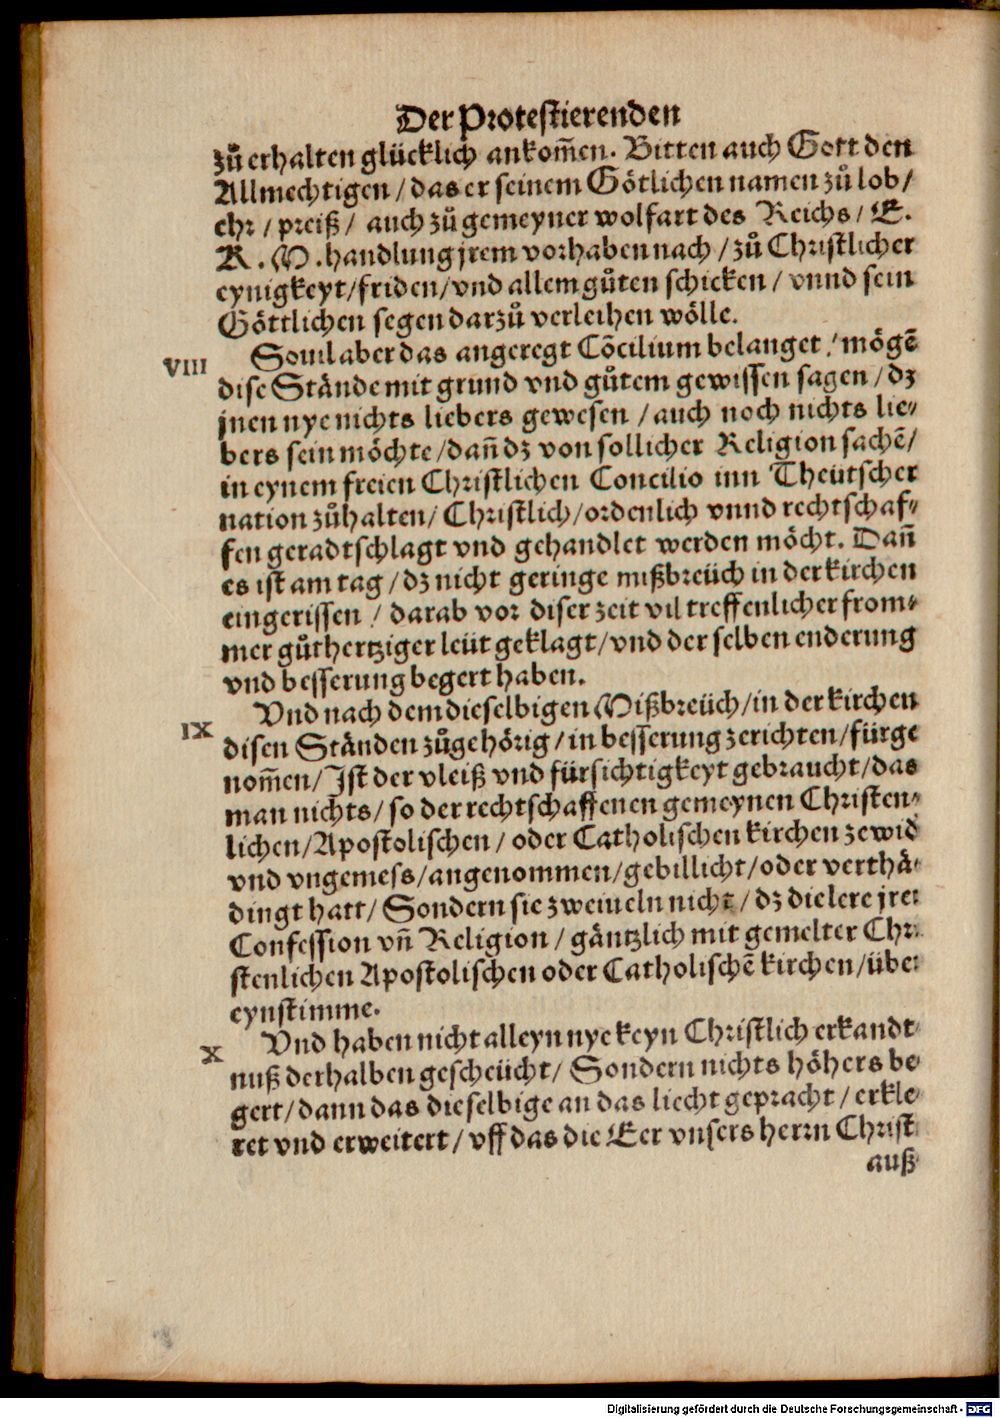 Der Protestierenden
zů erhalten glücklich ankom̃en. Bitten auch Gott den
Allmechtigen / das er seinem Götlichen namen zů lob /
ehr / preiß / auch zů gemeyner wolfart des Reichs / E.
K. M. handlung jrem vorhaben nach / zů Christlicher
eynigkeyt / friden / vnd allem gůten schicken / vnnd sein
Göttlichen segen darzů verleihen wölle.
VIII Souil aber das angeregt Cõcilium belanget / mögẽ
dise Stände mit grund vnd gůtem gewissen sagen / dz
jnen nye nichts liebers gewesen / auch noch nichts lie⸗
bers sein möchte / dañ dz von sollicher Religion sachẽ /
in eynem freien Christlichen Concilio inn Theütscher
nation zůhalten / Christlich / ordenlich vnnd rechtschaf⸗
fen geradtschlagt vnd gehandlet werden möcht. Dañ
es ist am tag / dz nicht geringe mißbreüch in der kirchen
eingerissen / darab vor diser zeit vil treffenlicher from⸗
mer gůthertziger leüt geklagt / vnd der selben enderung
vnd besserung begert haben.
IX Vnd nach dem dieselbigen Mißbreüch / in der kirchen
disen Ständen zůgehörig / in besserung zerichten / fürge
nom̃en / Ist der vleiß vnd fürsichtigkeyt gebraucht / das
man nichts / so der rechtschaffenen gemeynen Christen⸗
lichen / Apostolischen / oder Catholischen kirchen zewid
vnd vngemess / angenommen / gebillicht / oder verthä⸗
dingt hatt / Sondern sie zweiueln nicht / dz die lere jrer
Confession vñ Religion / gäntzlich mit gemelter Chri
stenlichen Apostolischen oder Catholischẽ kirchen / über
eynstimme.
X Vnd haben nicht alleyn nye keyn Christlich erkandt⸗
nuß derhalben gescheücht / Sondern nichts höhers be⸗
gert / dann das dieselbige an das liecht gepracht / erkle⸗
ret vnd erweitert / vff das die Eer vnsers herrn Christ
auß⸗
Digitalisierung gefördert durch die Deutsche Forschungsgemeinschaft - DFG